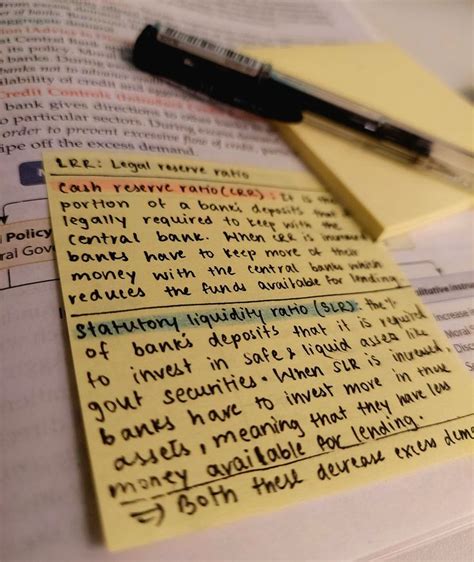 of banks. Ban
aggregate demand.
at Central Bank
its policy. Mo
banks. During ex
banks not to advance
ilability of credit and
Credit Controls
bank gives directions to other
o particular sectors. During excess
order to prevent excessive flow of credit,
ipe off the excess demand.
LRR: Legal reserve ratio
Cash reserve ratio (CRR): It is the
portion of a bank's deposits that
legally required to keep with the
central bank. When CRR is increased
banks have to keep more of their
money with the central bank which
reduces the funds available for lending
Statutory liquidity ratio (SLR): the %
of bank's deposits that it is required
to invest in safe & liquid assets like
govt securities. When SLR is increased
banks have to invest more in these
assets, meaning that they have less
money available for lending.
⇒ Both these decrease excess dem
Policy
ral Gov
litative Instru
Increase i
Mora
Disc
Se